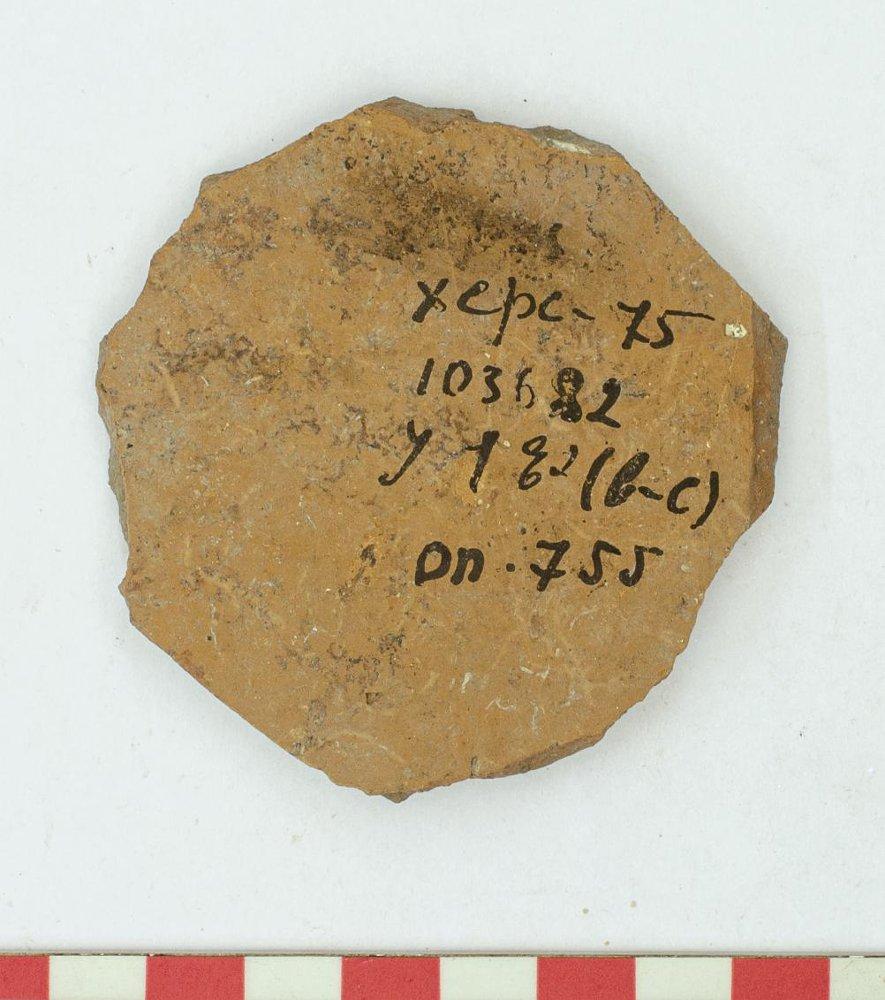 херс-75
103682
(в-с)
оп.755